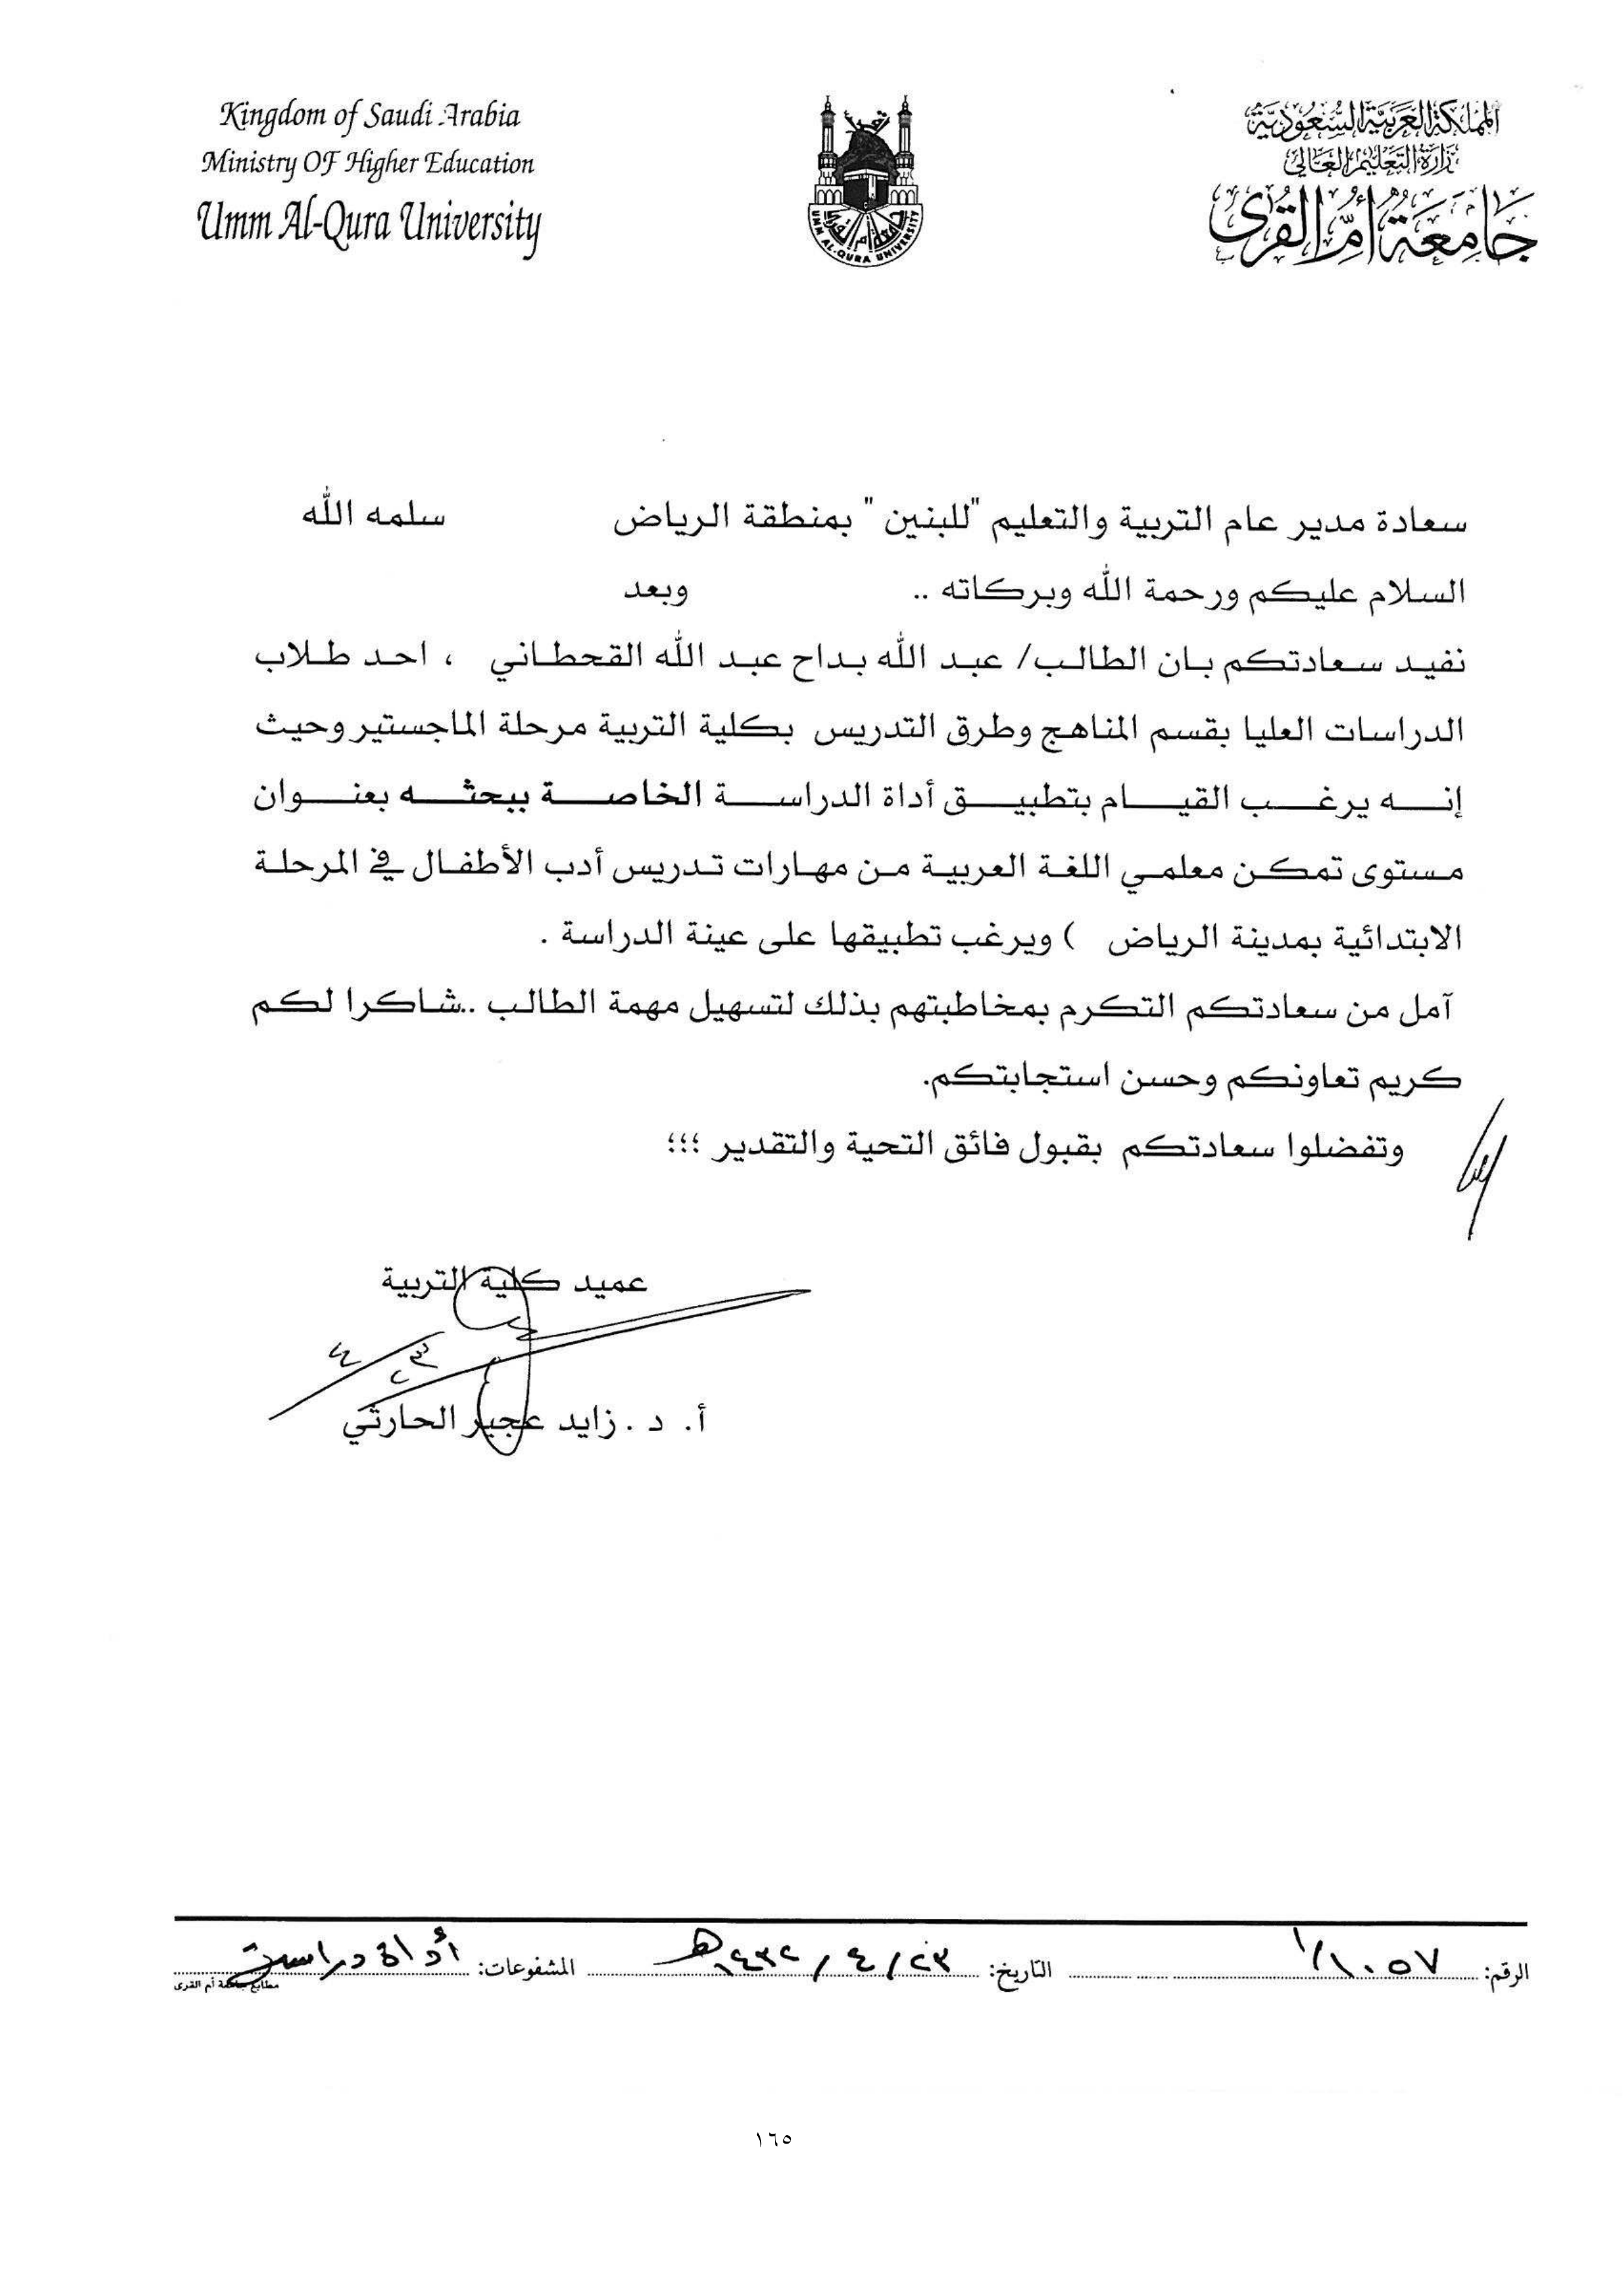 Kingdom of Saudi Arabia
Ministry OF Higher Education
Umm Al-Qura University
المملكة العربية السعودية
وزارة التعليم العالي
جامعة أم القرى
UMM AL-QURA UNIVERSITY
سعادة مدير عام التربية والتعليم "للبنين" بمنطقة الرياض سلمه الله
السلام عليكم ورحمة الله وبركاته .. وبعد
نفيد سعادتكم بان الطالب/ عبد الله بداح عبد الله القحطاني ، احد طلاب
الدراسات العليا بقسم المناهج وطرق التدريس بكلية التربية مرحلة الماجستير وحيث
إنه يرغب القيام بتطبيق أداة الدراسة الخاصة ببحثه بعنوان
مستوى تمكن معلمي اللغة العربية من مهارات تدريس أدب الأطفال في المرحلة
الابتدائية بمدينة الرياض ) ويرغب تطبيقها على عينة الدراسة .
آمل من سعادتكم التكرم بمخاطبتهم بذلك لتسهيل مهمة الطالب ..شاكرا لكم
كريم تعاونكم وحسن استجابتكم.
وتفضلوا سعادتكم بقبول فائق التحية والتقدير ؛؛؛
عميد كلية التربية
أ. د . زايد عجير الحارثي
الرقم: ١/١٠٥٧ التاريخ: ٢٣/٤/١٤٣٢هـ المشفوعات: أداة دراسة
مطابع جامعة أم القرى
١٦٥